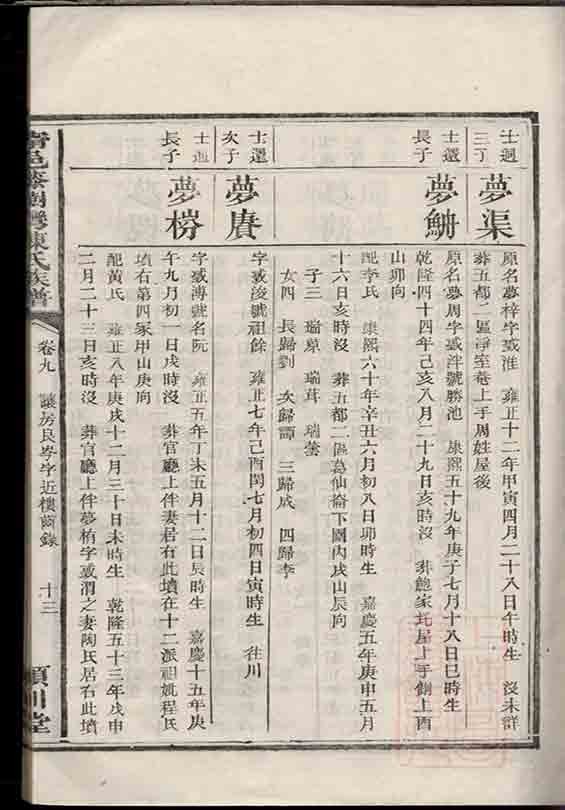 士週
三子
夢渠
原名夢梓字彧淮　雍正十二年甲寅四月二十八日午時生　沒未詳
葬五都二區淨室菴上手周姓屋後
士選
長子
夢鯏
原名夢周字彧泮號勝池　康熙五十九年庚子七月十八日巳時生
乾隆四十四年己亥八月二十九日亥時沒　葬鮑家坑屋上手側上酉
山卯向
配李氏　康熙六十年辛丑六月初八日卯時生　嘉慶五年庚申五月
十六日亥時沒　葬五都二區葛仙崙下園內戌山辰向
子三　瑞草　瑞茸　瑞蓥
女四　長歸劉　次歸譚　三歸成　四歸李
士選
次子
夢賡
字彧浚號祖餘　雍正七年己酉閏七月初四日寅時生　往川
士週
長子
夢榜
字彧溥號名阮　雍正五年丁未五月十二日辰時生　嘉慶十五年庚
午九月初一日戌時沒　葬官廳上伴妻居右此墳在十二派祖妣程氏
墳右第四冢甲山庚向
配黃氏　雍正八年庚戌十二月三十日未時生　乾隆五十三年戊申
二月二十三日亥時沒　葬官廳上伴夢栯字彧渭之妻陶氏居右此墳
陳氏族譜
卷九　讓房良岑字近樓齒錄　十三
潁川堂